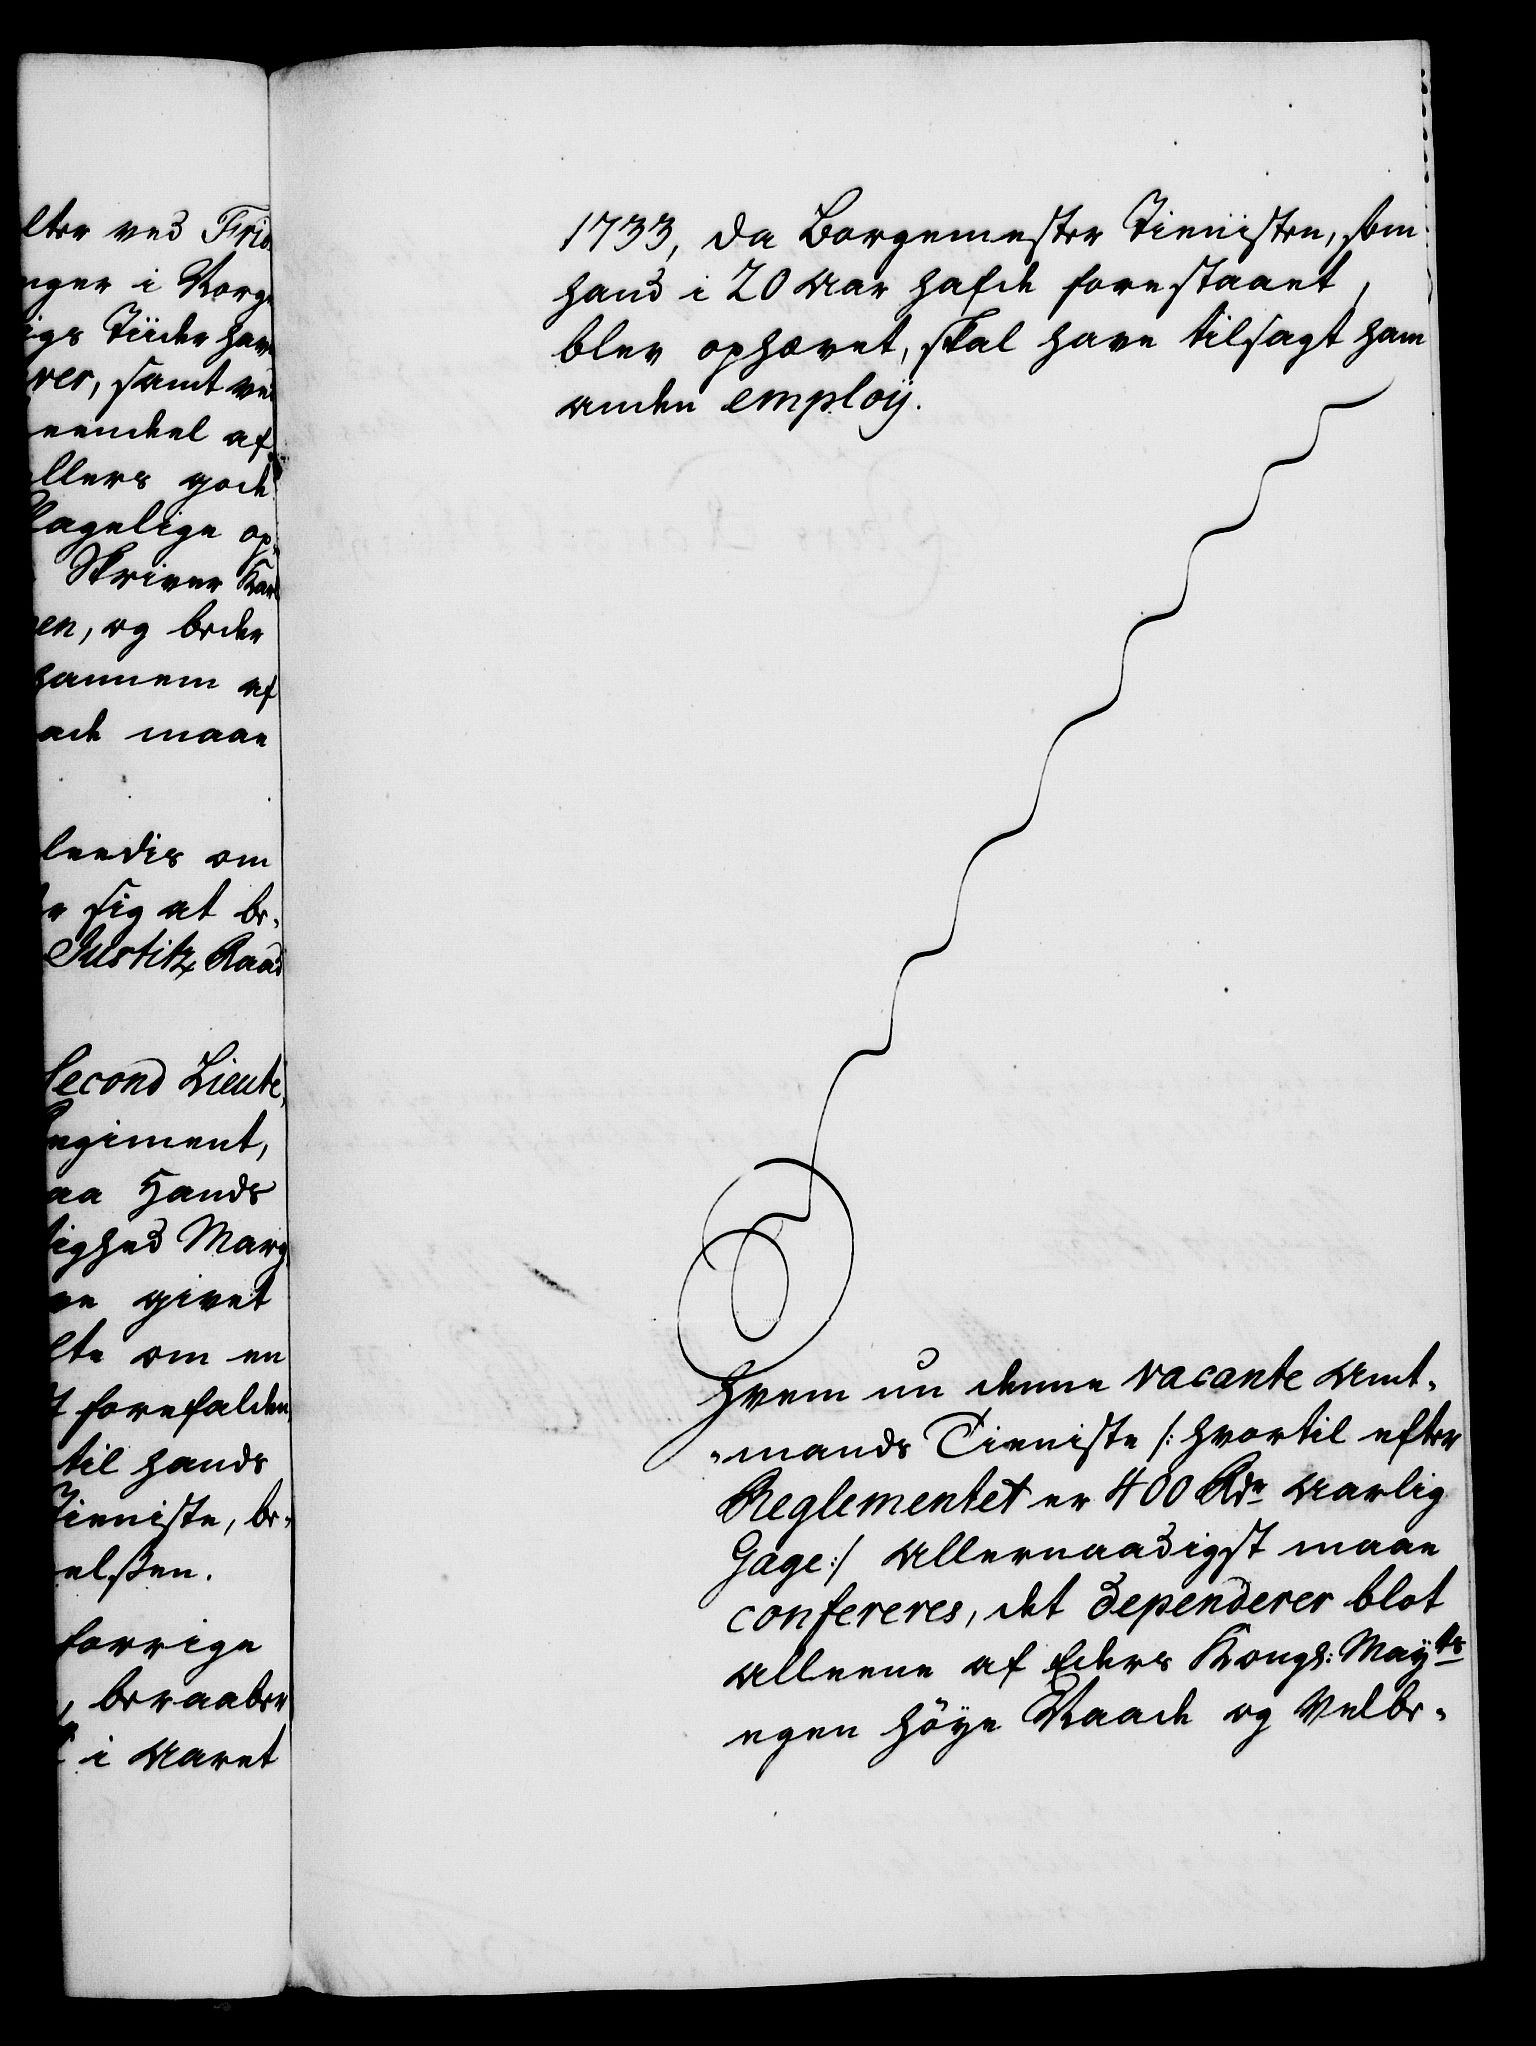 lter ved Frid
nger i Norge
igs Tiider hav
rer, samt ve
eendeel af
llers gode
lagelige op
Skriver Kar
en, og beder
hannem af
ade maae
leedis om
r sig at be-
Justitz Raad
Second Lieute,
Regiment,
aa Hands
tighed Marg
ve givet
lte om en
t forefalden
til hands
Tieniste, be-
elßen.
forrige
, beraaber
i Aaret
1733, da Borgemester Tieniisten, som
hand i 20 Aar hafde forestaaet,
blev ophævet, skal have tilsagt ham
anden employ.
Hvem nu denne vacante Amt-
-mands Tieniste /: hvortil efter
Reglementet er 400 Rdr Aarlig
Gage :/ Allernaadigst maae
confereres, det dependerer blot
alleene af Eders Kongl: Mayts
egen höye Naade og Velbe-